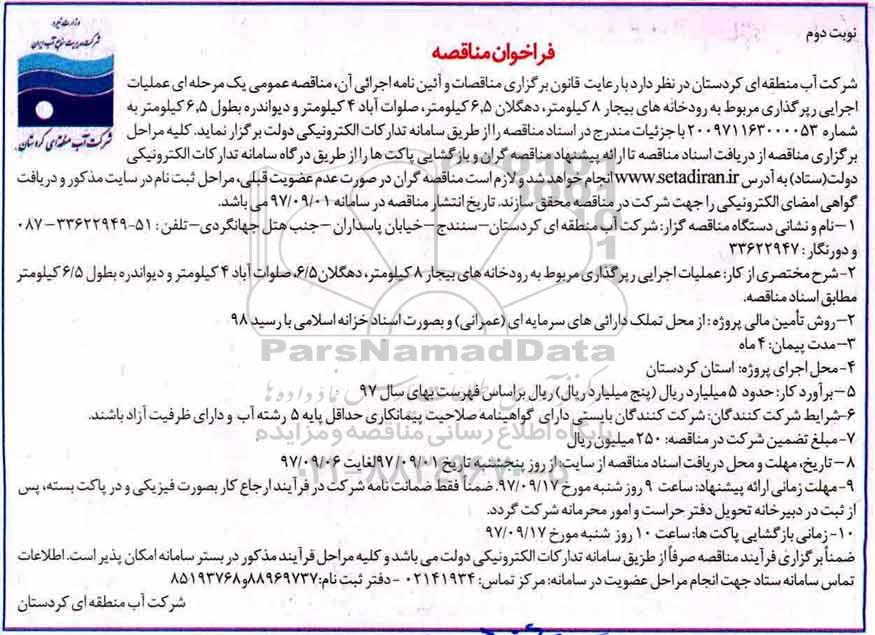 نوبت دوم
وزارت نیرو
شرکت مدیریت منابع آب ایران
شرکت آب منطقه‌ای کردستان
فراخوان مناقصه
شرکت آب منطقه ای کردستان در نظر دارد با رعایت قانون برگزاری مناقصات و آئین نامه اجرائی آن، مناقصه عمومی یک مرحله ای عملیات
اجرایی رپرگذاری مربوط به رودخانه های بیجار ۸ کیلومتر، دهگلان ۶,۵ کیلومتر، صلوات آباد ۴ کیلومتر و دیواندره بطول ۶,۵ کیلومتر به
شماره ۲۰۰۹۷۱۱۶۳۰۰۰۰۵۳ با جزئیات مندرج در اسناد مناقصه را از طریق سامانه تدارکات الکترونیکی دولت برگزار نماید. کلیه مراحل
برگزاری مناقصه از دریافت اسناد مناقصه تا ارائه پیشنهاد مناقصه گران و بازگشایی پاکت ها را از طریق درگاه سامانه تدارکات الکترونیکی
دولت(ستاد) به آدرس www.setadiran.ir انجام خواهد شد و لازم است مناقصه گران در صورت عدم عضویت قبلی، مراحل ثبت نام در سایت مذکور و دریافت
گواهی امضای الکترونیکی را جهت شرکت در مناقصه محقق سازند. تاریخ انتشار مناقصه در سامانه ۹۷/۰۹/۰۱ می باشد.
۱-نام و نشانی دستگاه مناقصه گزار: شرکت آب منطقه ای کردستان-سنندج-خیابان پاسداران-جنب هتل جهانگردی-تلفن: ۵۱-۳۳۶۲۲۹۴۹-۰۸۷
و دورنگار: ۳۳۶۲۲۹۴۷
۲-شرح مختصری از کار: عملیات اجرایی رپرگذاری مربوط به رودخانه های بیجار ۸ کیلومتر، دهگلان ۶/۵، صلوات آباد ۴ کیلومتر و دیواندره بطول ۶/۵ کیلومتر
مطابق اسناد مناقصه.
۲-روش تأمین مالی پروژه: از محل تملک دارائی های سرمایه ای (عمرانی) و بصورت اسناد خزانه اسلامی با رسید ۹۸
۳-مدت پیمان: ۴ ماه
۴-محل اجرای پروژه: استان کردستان
۵-برآورد کار: حدود ۵ میلیارد ریال (پنج میلیارد ریال) ریال براساس فهرست بهای سال ۹۷
۶-شرایط شرکت کنندگان: شرکت کنندگان بایستی دارای گواهینامه صلاحیت پیمانکاری حداقل پایه ۵ رشته آب و دارای ظرفیت آزاد باشند.
۷-مبلغ تضمین شرکت در مناقصه: ۲۵۰ میلیون ریال
۸-تاریخ، مهلت و محل دریافت اسناد مناقصه از سایت: از روز پنجشنبه تاریخ ۹۷/۰۹/۰۱ لغایت ۹۷/۰۹/۰۶
۹-مهلت زمانی ارائه پیشنهاد: ساعت ۹ روز شنبه مورخ ۹۷/۰۹/۱۷. ضمناً فقط ضمانت نامه شرکت در فرآیند ارجاع کار بصورت فیزیکی و در پاکت بسته، پس
از ثبت در دبیرخانه تحویل دفتر حراست و امور محرمانه شرکت گردد.
۱۰-زمانی بازگشایی پاکت ها: ساعت ۱۰ روز شنبه مورخ ۹۷/۰۹/۱۷
ضمناً برگزاری فرآیند مناقصه صرفاً از طریق سامانه تدارکات الکترونیکی دولت می باشد و کلیه مراحل فرآیند مذکور در بستر سامانه امکان پذیر است. اطلاعات
تماس سامانه ستاد جهت انجام مراحل عضویت در سامانه: مرکز تماس: ۰۲۱۴۱۹۳۴ - دفتر ثبت نام: ۸۸۹۶۹۷۳۷ و ۸۵۱۹۳۷۶۸
شرکت آب منطقه ای کردستان
ParsNamadData
پایگاه اطلاع رسانی مناقصه و مزایده